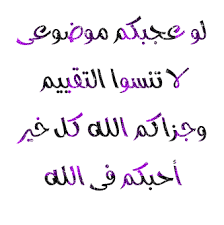 لو عجبكم موضوعى
لا تنسوا التقييم
وجزاكم الله كل خير
أحبكم فى الله